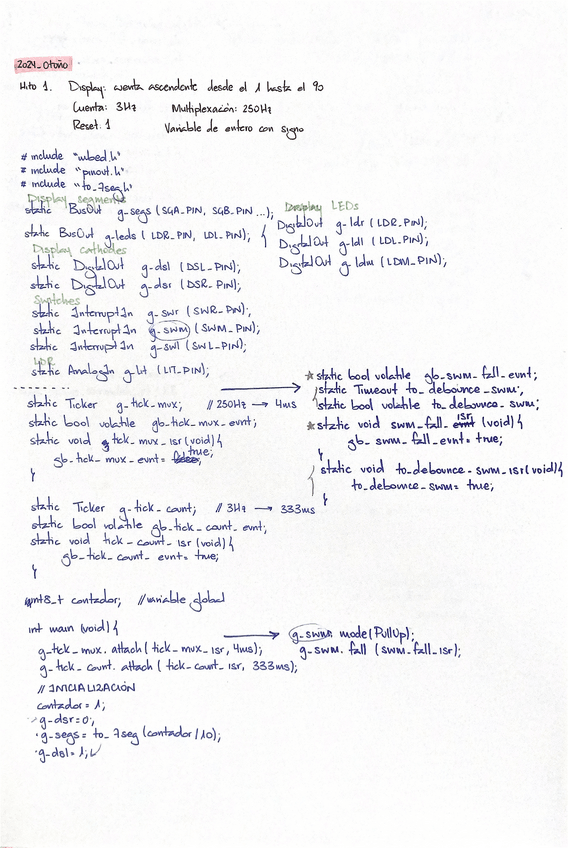 2024_Otoño
Hito 1. Display: cuenta ascendente desde el 1 hasta el 90
Cuenta: 3Hz Multiplexación: 250Hz
Reset: 1 Variable de entero con signo
# include "mbed.h"
# include "pinout.h"
# include "to_7seg.h"
Display segments
static BusOut g-segs (SGA-PIN, SGB-PIN ...);
static BusOut g-leds ( LDR_PIN, LDL-PIN);
Display LEDs
DigitalOut g-ldr (LDR-PIN);
DigitalOut g-ldl (LDL-PIN);
DigitalOut g-ldm (LDM-PIN);
Display cathodes
static DigitalOut g-dsl (DSL-PIN);
static DigitalOut g-dsr (DSR-PIN);
Switches
static InterruptIn g-swr (SWR-PIN);
static InterruptIn g-swm (SWM-PIN);
static InterruptIn g-swl (SWL-PIN);
LDR
static AnalogIn g-lit (LIT-PIN);
static Ticker g-tick_mux; // 250Hz → 4ms
static bool volatile gb-tick-mux-evnt;
static void g tick-mux-isr (void){
gb-tick-mux-evnt = true;
}
static Ticker g-tick_count; // 3Hz → 333ms
static bool volatile gb-tick-count-evnt;
static void tick-count-isr (void){
gb-tick-count-evnt = true;
}
★ static bool volatile gb_swm_fall_evnt;
static Timeout to_debounce_swm;
static bool volatile to_debounce_swm;
★ static void swm_fall_isr (void){
gb_swm_fall_evnt = true;
}
static void to_debounce_swm_isr (void){
to_debounce_swm = true;
}
uint8_t contador; //variable global
int main (void){
g-tick_mux. attach ( tick-mux-isr, 4ms);
g-tick-count. attach ( tick-count-isr, 333ms);
→ g-swm. mode(PullUp);
g-swm. fall (swm_fall_isr);
// INICIALIZACIÓN
contador = 1;
g-dsr = 0;
g-segs = to_7seg (contador/10);
g-dsl = 1;